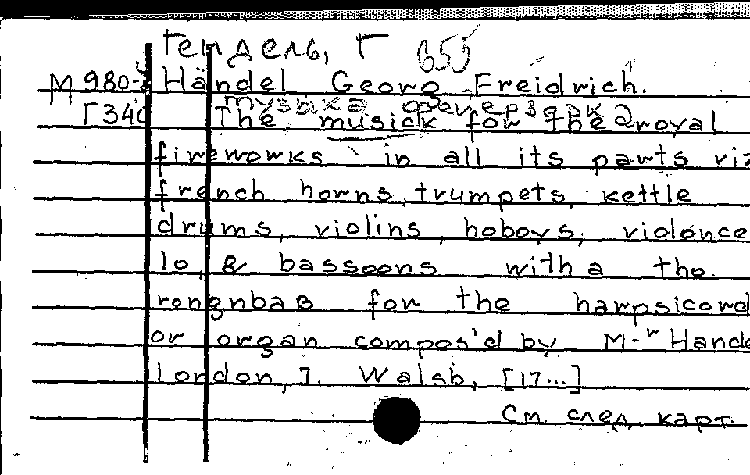 Гендель, Г 655
М 980-3 Händel, Georg Freidrich.
музыка фейерверк
Г340 The musick for the royal
fireworks in all its parts viz
french horns, trumpets, kettle
drums, violins, hoboys, violonce
lo, & bassoons with a tho.
for the harpsicord
or organ compos'd by M-r Hande
London, J. Walsh, [17...]
См. след. карт.